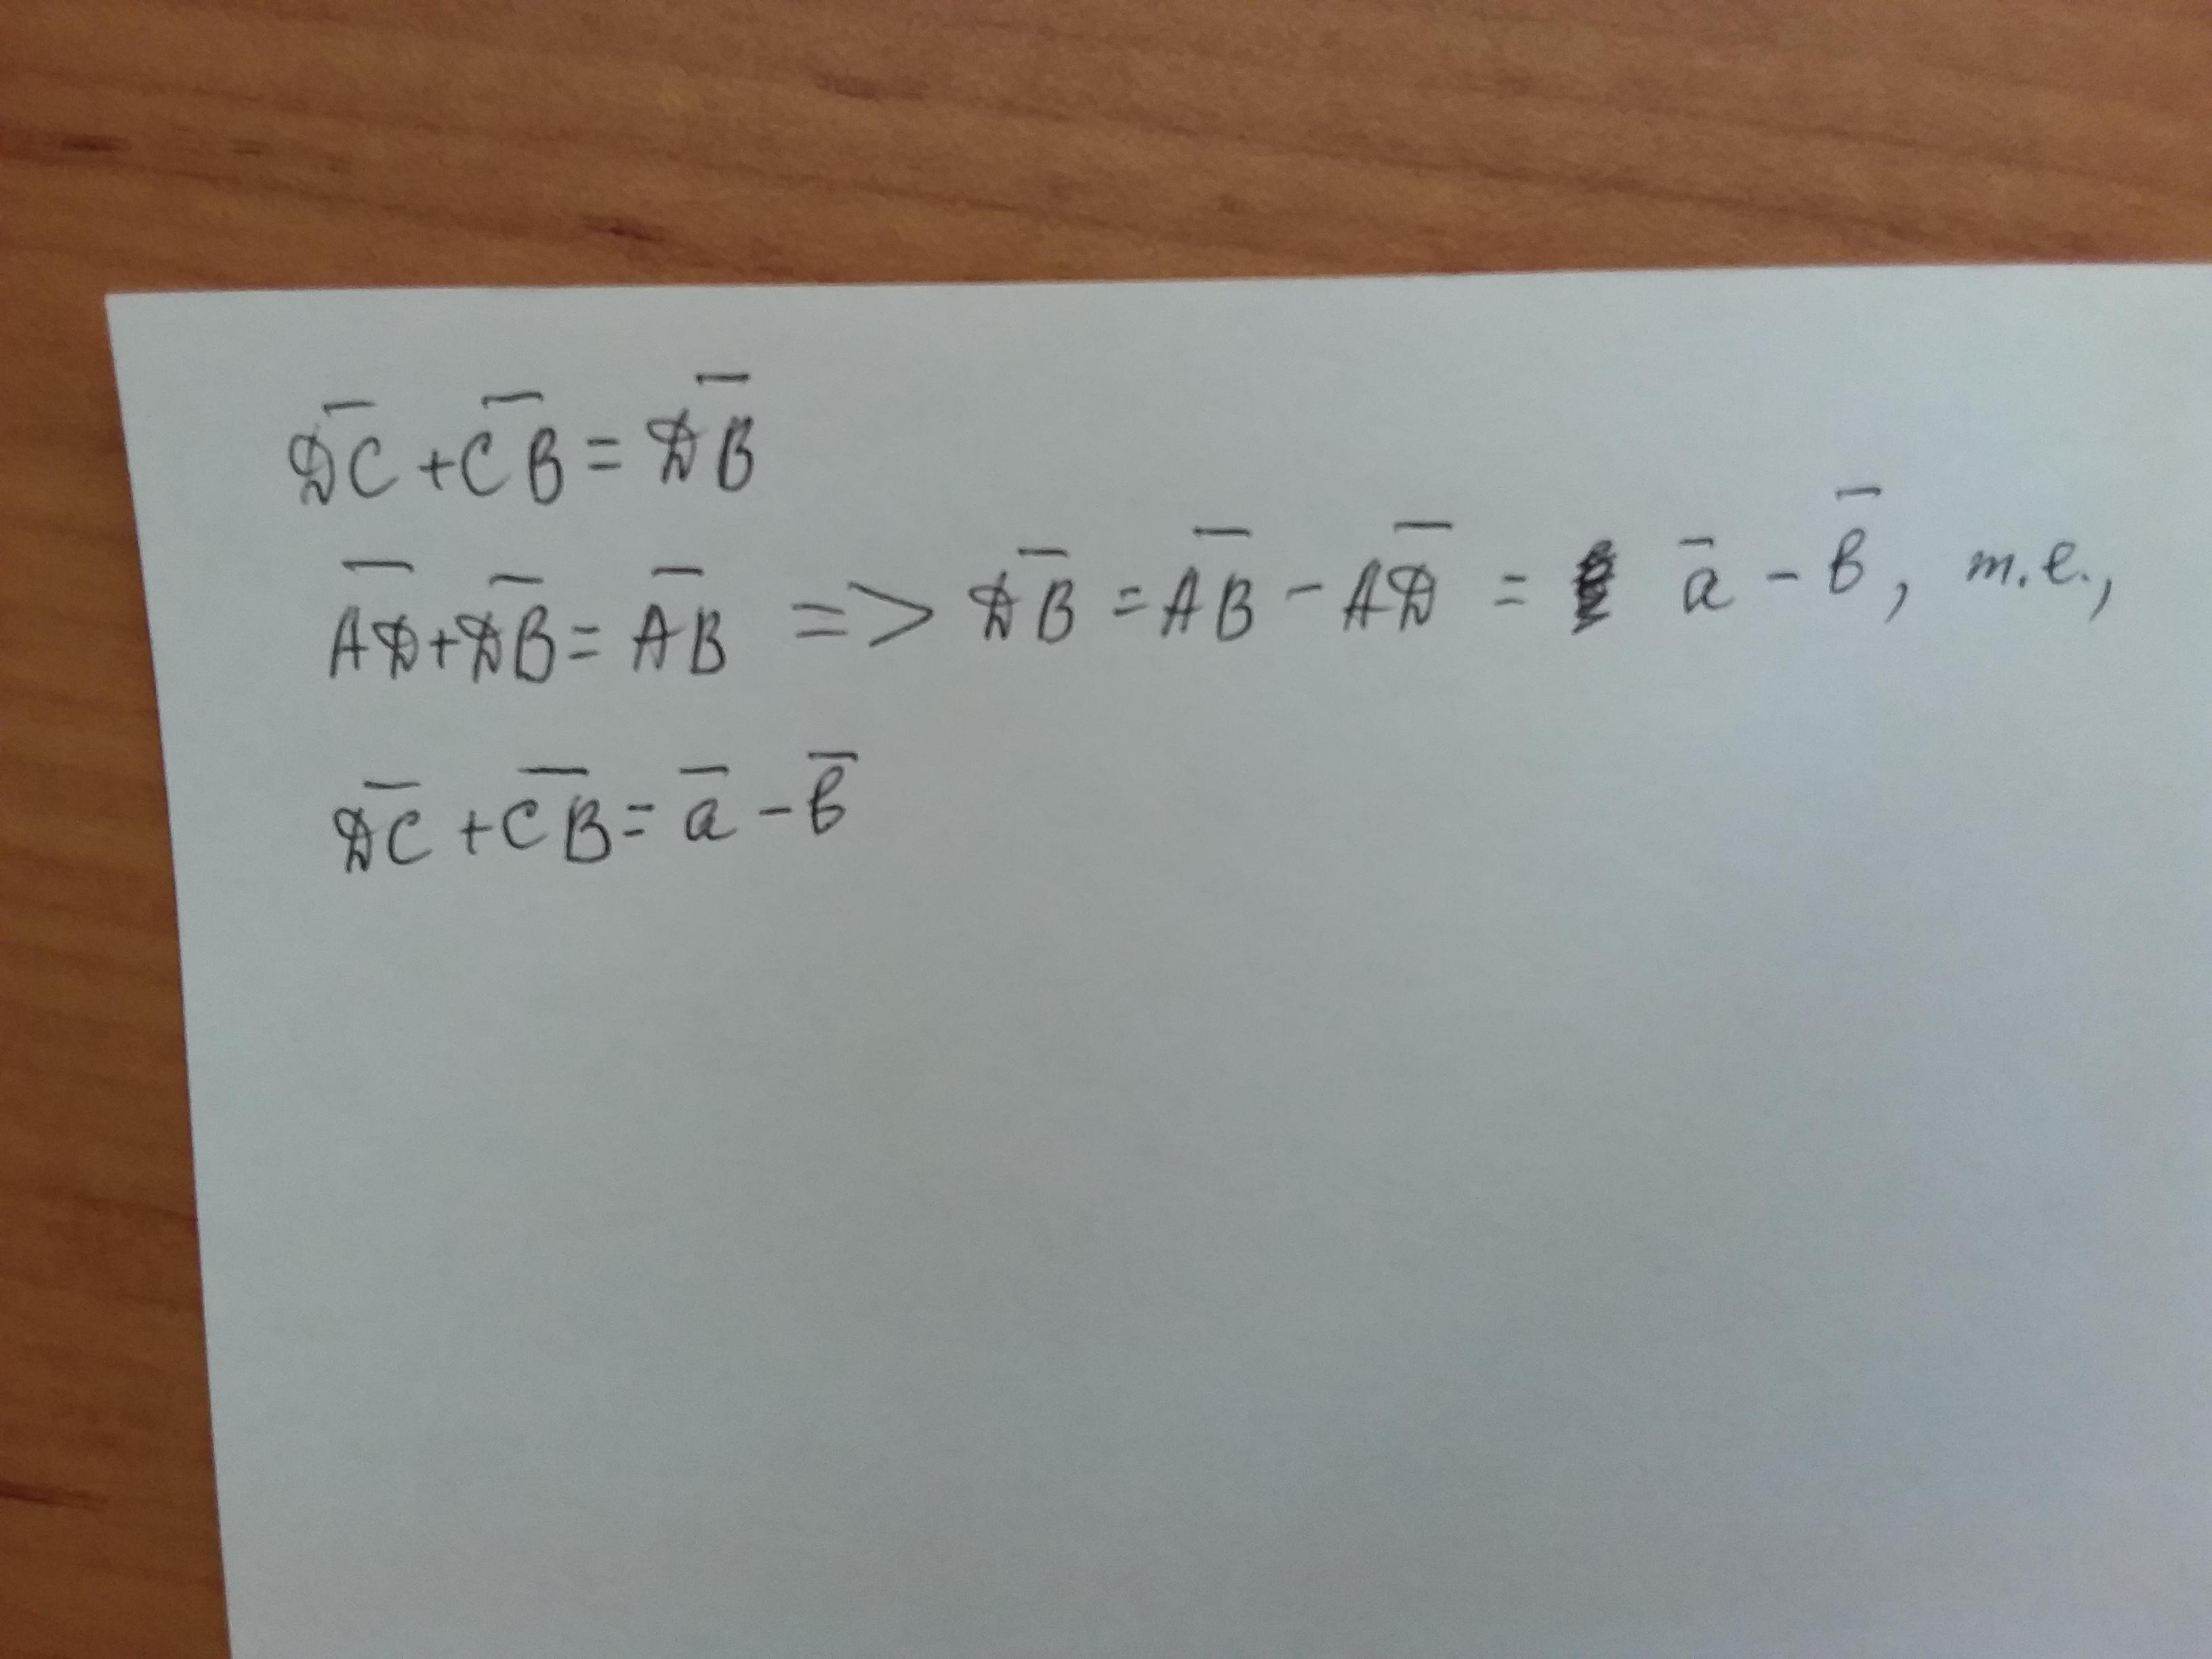 D̅C̅ + C̅B̅ = D̅B̅
A̅D̅ + D̅B̅ = A̅B̅ => D̅B̅ = A̅B̅ - A̅D̅ = a̅ - b̅, т.е.,
D̅C̅ + C̅B̅ = a̅ - b̅